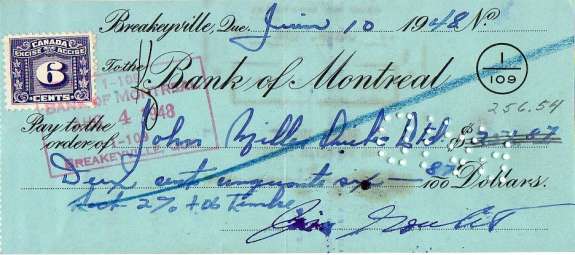 Breakeyville, Que. Juin 10 1948 No
CANADA
EXCISE ACCISE
6
CENTS
To the Bank of Montreal
1
109
BANK OF MONTREAL
4 1948
BREAKEYVILLE
256.54
Pay to the
order of John Ltd. $
Deux cent cinquante six — 87/100 Dollars.
2% + 06 Timbre